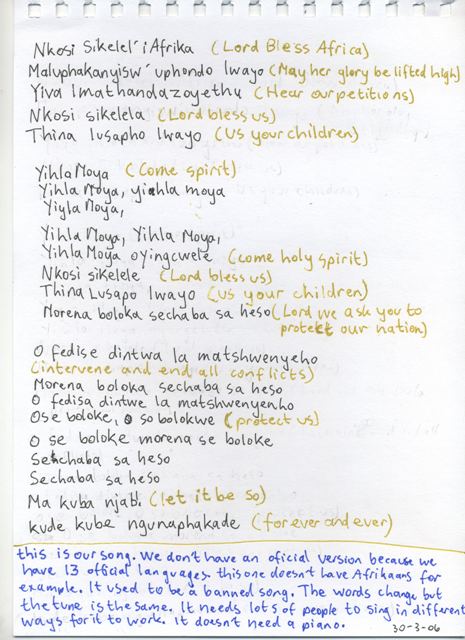 Nkosi Sikelel' iAfrika (Lord Bless Africa)
Maluphakanyisw' uphondo lwayo (May her glory be lifted high)
Yiva Imathandazoyethu (Hear our petitions)
Nkosi sikelela (Lord bless us)
Thina lusapho lwayo (Us your children)
Yihla Moya (Come spirit)
Yihla Moya, yihla moya
Yiyla Moya,
Yihla Moya, Yihla Moya,
Yihla Moya oyingcwele (come holy spirit)
Nkosi sikelele (Lord bless us)
Thina Lusapo lwayo (us your children)
Morena boloka sechaba sa heso (Lord we ask you to
protect our nation)
O fedise dintwa la matshwenyeho
(intervene and end all conflicts)
Morena boloka sechaba sa heso
O fedisa dintwe la matshwenyenho
Ose boloke, O so bolokwe (protect us)
O se boloke morena se boloke
Sechaba sa heso
Sechaba sa heso
Ma kuba njab. (let it be so)
kude kube ngunaphakade (for ever and ever)
this is our song. We don't have an oficial version because we
have 13 official languages. this one doesn't have Afrikaans for
example. It used to be a banned song. The words change but
the tune is the same. It needs lots of people to sing in different
ways for it to work. It doesn't need a piano.
30-3-06